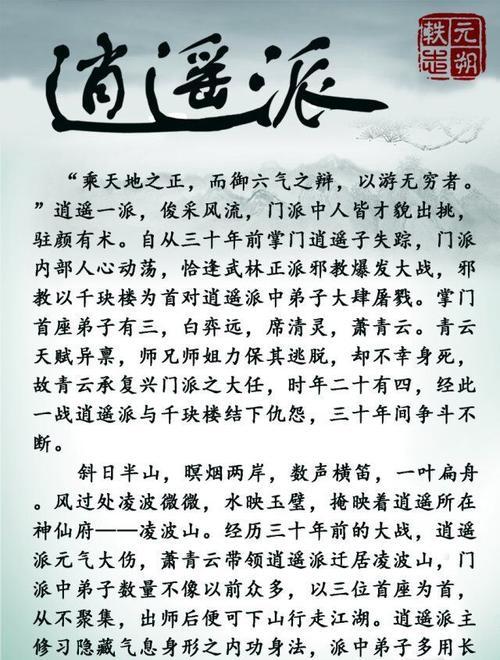 逍遥派
元朔
轶志
“乘天地之正，而御六气之辩，以游无穷者。
”逍遥一派，俊采风流，门派中人皆才貌出挑，
驻颜有术。自从三十年前掌门逍遥子失踪，门派
内部人心动荡，恰逢武林正派邪教爆发大战，邪
教以千玦楼为首对逍遥派中弟子大肆屠戮。掌门
首座弟子有三，白弈远，席清灵，萧青云。青云
天赋异禀，师兄师姐力保其逃脱，却不幸身死，
故青云承复兴门派之大任，时年二十有四，经此
一战逍遥派与千玦楼结下仇怨，三十年间争斗不
断。
斜日半山，暝烟两岸，数声横笛，一叶扁舟
。风过处凌波微微，水映玉璧，掩映着逍遥所在
神仙府——凌波山。经历三十年前的大战，逍遥
派元气大伤，萧青云带领逍遥派迁居凌波山，门
派中弟子数量不像以前众多，以三位首座为首，
从不聚集，出师后便可下山行走江湖。逍遥派主
修习隐藏气息身形之内功身法，派中弟子多用长